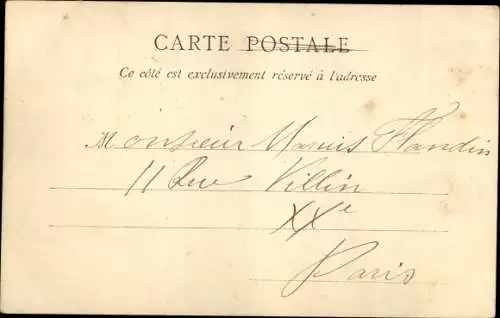 CARTE POSTALE
Ce côté est exclusivement réservé à l'adresse
Monsieur Marius Flandin
11 Rue Villin
XXe
Paris